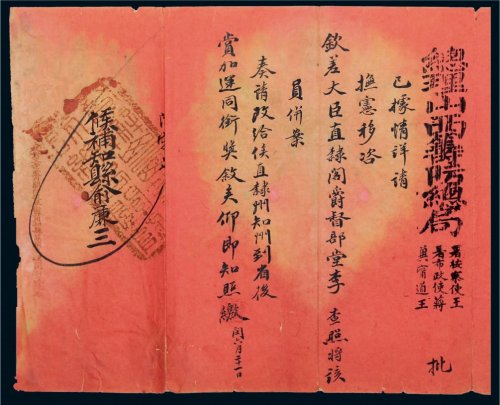 總理山西籌賑總局
署按察使王
署布政使蔣
冀寧道王
批
已據情詳請
撫憲移咨
欽差大臣直隸閣爵督部堂李 查照將該
員併案
奏請改給俟直隸州知州到省後
賞加運同銜獎敘矣仰即知照繳 閏六月二十一日
候補知縣俞廉三